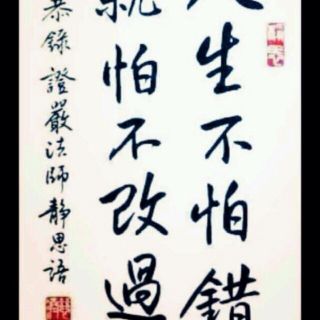 人生不怕錯
就怕不改過
恭錄證嚴法師靜思語